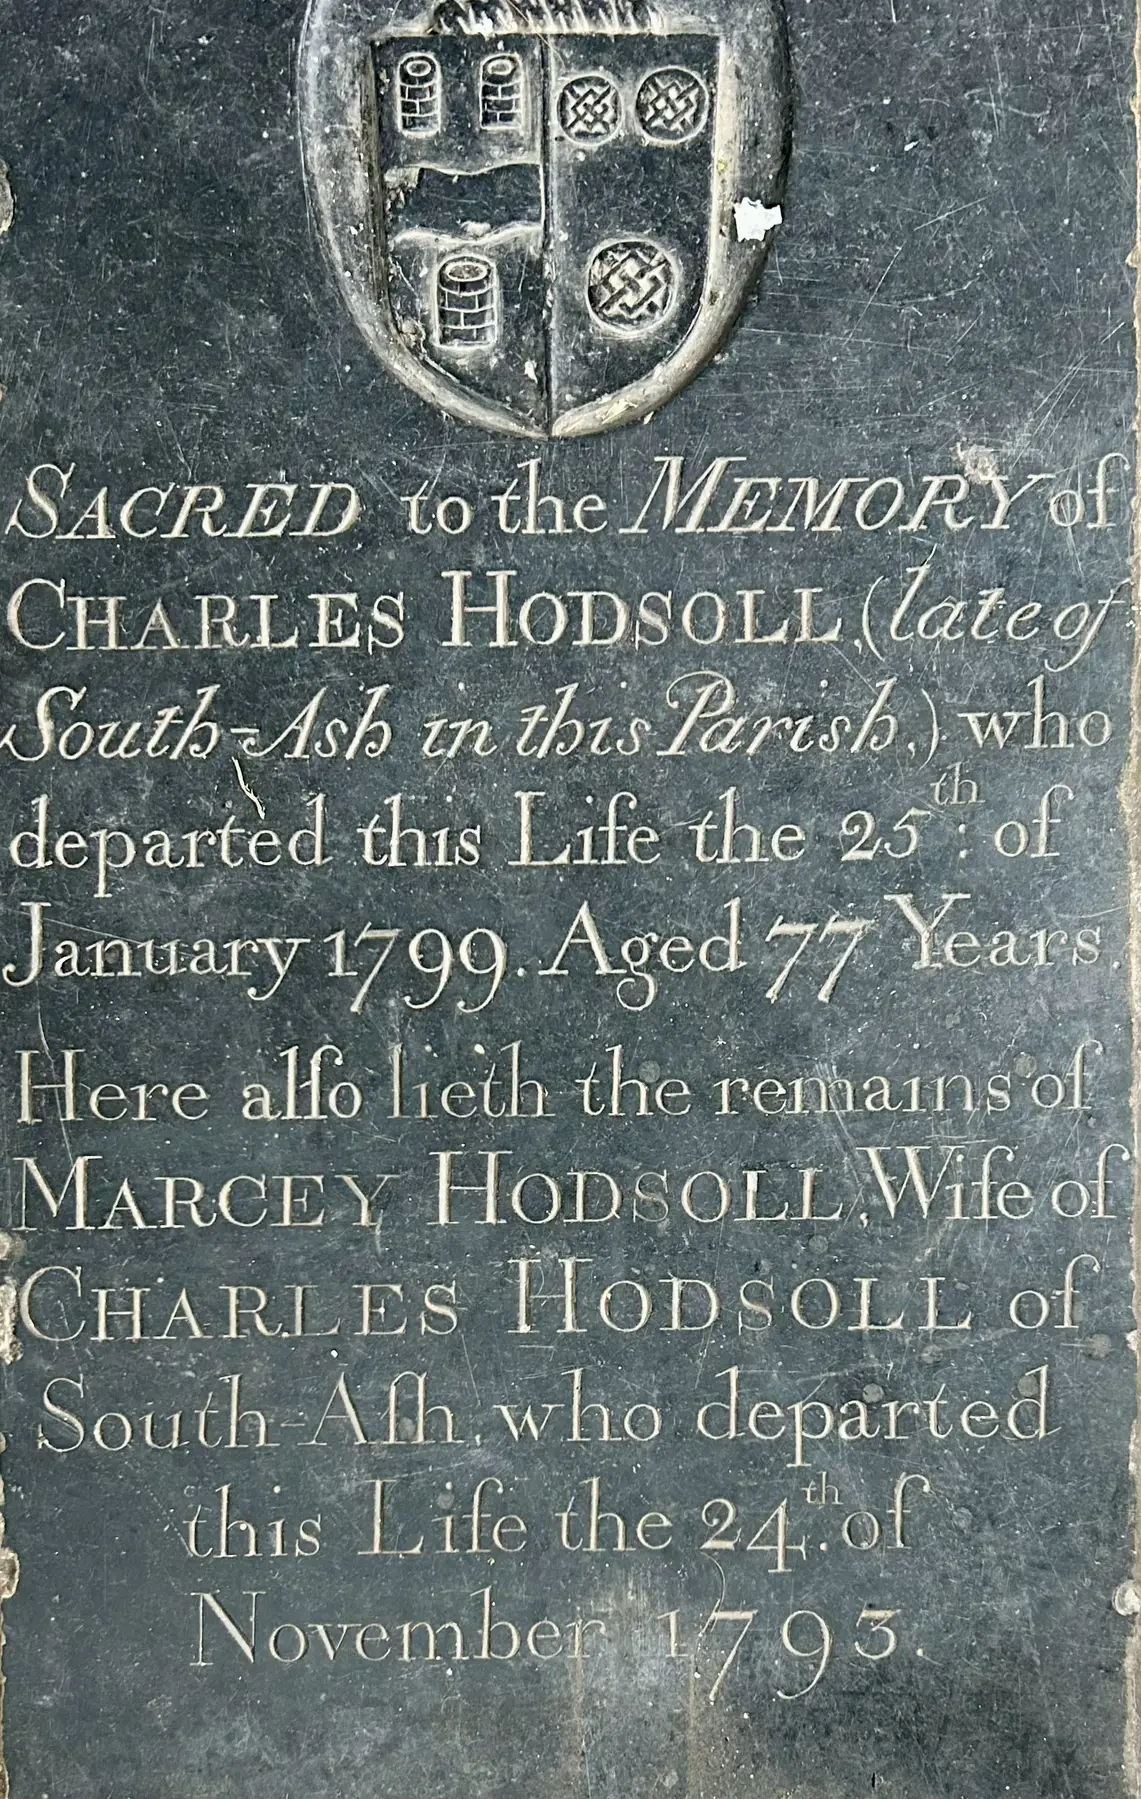 SACRED to the MEMORY of
CHARLES HODSOLL, (late of
South-Ash in this Parish,) who
departed this Life the 25th: of
January 1799. Aged 77 Years.
Here alſo lieth the remains of
MARCEY HODSOLL, Wife of
CHARLES HODSOLL of
South-Aſh, who departed
this Life the 24th. of
November 1793.